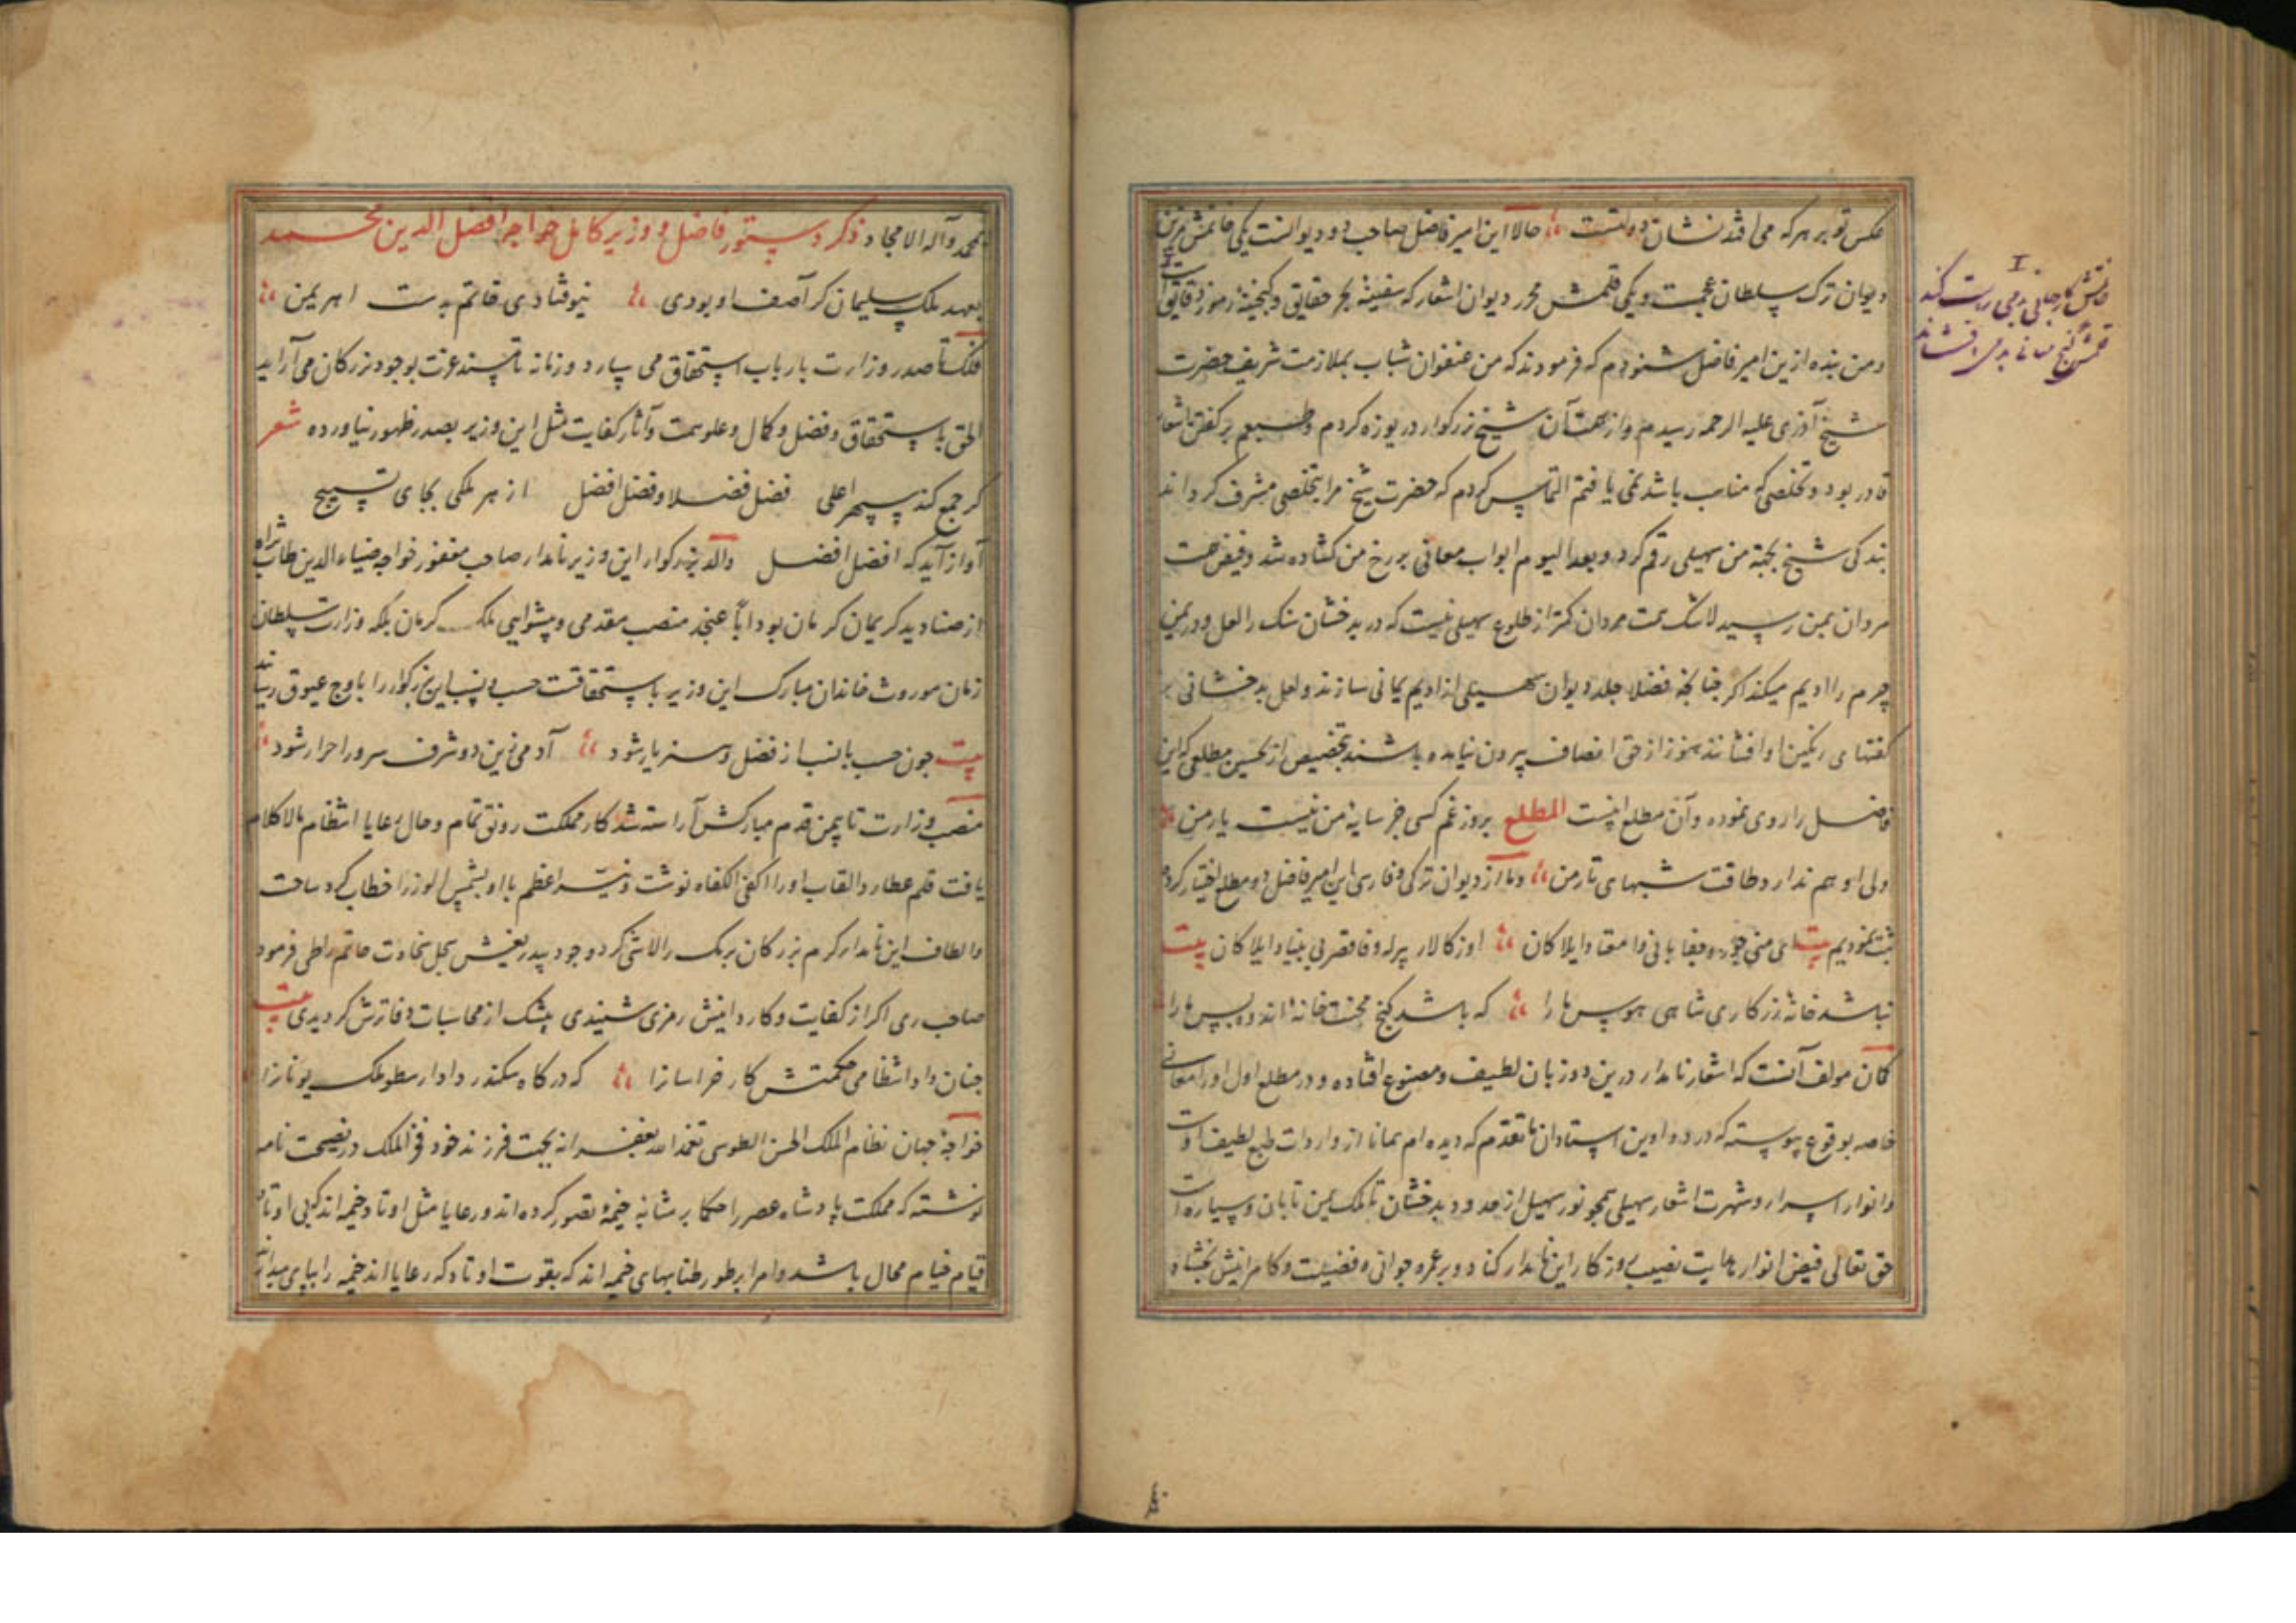 عکس تو بر هر که می افتد نشان دولتست حالا این امیر فاضل صاحب دو دیوانست یکی خاتمش مزین
دیوان ترک سلطان عجمست و یکی قلمش محرر دیوان اشعار که سفینهٔ بحر حقایق و گنجینهٔ رموز دقایق است
و من بنده ازین امیر فاضل شنودم که فرمودند که من عنفوان شباب بملازمت شریف حضرت
شیخ آذری علیه الرحمه رسیدم و از همت آن شیخ بزرگوار دریوزه کردم و طبعم بر گفتن اشعار
قادر بود و تخلصی که مناسب باشد نمی یافتم التماس کردم که حضرت شیخ مرا بتخلصی مشرف گرداند
بندگی شیخ بجهة من سهیلی رقم کرد و بعد الیوم ابواب معانی بر رخ من کشاده شد و فیض همت
مردان بمن رسید لاشک همت مردان کمتر از طلوع سهیلی نیست که در بدخشان سنک را لعل و در یمن
چرم را ادیم میکند اکر چنانچه فضلا جلد دیوان سهیلی از ادیم یمانی سازند و لعل بدخشانی بر
گفتهای رنگین او افشانند هنوز از حق انصاف بیرون نیامده باشند بتخصیص از تحسین مطلعی که این
فاضل را روی نموده و آن مطلع اینست المطلع بروز غم کسی جز سایهٔ من نیست یار من
ولی او هم ندارد طاقت شبهای تار من و ما از دیوان ترکی و فارسی این امیر فاضل دو مطلع اختیار کرده
ثبت نمودیم بیت
نباشد خانهٔ زرکاری شاهی هوس ما را که باشد کنج محنت خانهٔ اندوه بس ما را
کمان مولف آنست که اشعار نامدار درین دو زبان لطیف و مصنوع افتاده و در مطلع اول او را معانی
خاصه بوقوع پیوسته که در دواوین استادان ما تقدم که دیده ام همانا از واردات طبع لطیف اوست
و انوار اسرار و شهرت اشعار سهیلی همچو نور سهیل از حدود بدخشان تا ملک یمن تابان و سیاره است
حق تعالی فیض انوار هدایت نصیب روزکار این نامدار کناد و بر عمر و جوانی و فضیلت و کامرانیش بخشاد
I
خاتمش کار جهانی بدمی راست کند
قلمش گنج معانی بدمی افشاند
بمحمد و آله الامجاد ذکر دستور فاضل و وزیر کامل خواجه افضل الدین محمد
بعهد ملک سلیمان کر آصف او بودی نیوفتادی خاتم بدست اهریمن
فلک تا صدر وزارت بارباب استحقاق می سپارد و زمانه تا مسند عزت بوجود بزرکان می آراید
الحق باستحقاق و فضل و کمال و علو همت و آثار کفایت مثل این وزیر بصدر ظهور نیاورده شعر
کر جمع کند سپهر اعلی فضل فضلا و فضل افضل از هر ملکی بجای تسبیح
آواز آید که افضل افضل والد بزرکوار این وزیر نامدار صاحب مغفور خواجه ضیاء الدین طاب ثراه
از صنادید کریمان کرمان بود ابا عنجد منصب مقدمی و پیشوایی ملک کرمان بلکه وزارت سلطان
زمان موروث خاندان مبارک این وزیر باستحقاقست حسب و نسب این بزرکوار را باوج عیوق رسانیده
بیت چون حسب با نسب از فضل و هنر یار شود آدمی زین دو شرف سرور احرار شود
منصب وزارت تا بیمن قدم مبارکش آراسته شد کار مملکت رونق تمام و حال رعایا انتظام مالاکلام
یافت قلم عطارد القاب او را اکفی الکفاه نوشت و نیر اعظم با او بشمس الوزرا خطاب کرد ساحت
و الطاف این نامدار کرم بزرکان برمک را لاشی کرد و جود بیدریغش سجل سخاوت حاتم را طی فرمود
صاحب ری اکر از کفایت و کاردانیش رمزی شنیدی بیشک از محاسبات دفاترش کردیدی بیت
چنان داد انتظامی حکمتش کار خراسانرا که در کاه سکندر داد ارسطو ملک یونانرا
خواجهٔ جهان نظام الملک الحسن الطوسی تغمده الله بغفرانه بجهت فرزند خود فخر الملک در نصیحت نامه
نوشته که مملکت پادشاه عصر را حکما بر مثابهٔ خیمهٔ تصور کرده اند و رعایا مثل اوتاد خیمه اند که بی اوتاد
قیام خیام محال باشد و امرا بر طور طنابهای خیمه اند که بقوت اوتاد که رعایا اند خیمه را بپای میدارند